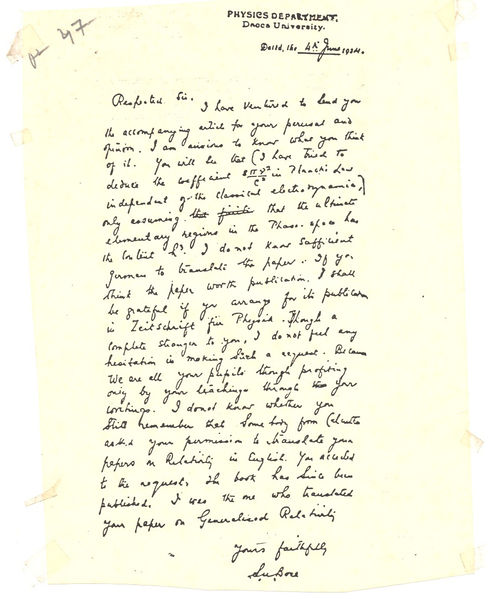 47
PHYSICS DEPARTMENT.
Dacca University.
Dated, the 4th June 1924.
Respected Sir, I have ventured to send you
the accompanying article for your perusal and
opinion. I am anxious to know what you think
of it. You will see that (I have tried to
deduce the coefficient 8πν²/c³ in Planck's Law
independent of the classical electrodynamics,)
only assuming that the ultimate
elementary regions in the Phase-space has
the Content h³. I do not know sufficient
German to translate the paper. If you
think the paper worth publication, I shall
be grateful if you arrange for its publication
in Zeitschrift für Physik. Though a
complete stranger to you, I do not feel any
hesitation in making such a request. Because
We are all your pupils though profiting
only by your teachings through your
writings. I donot know whether you
still remember that Somebody from Calcutta
asked your permission to translate your
papers on Relativity in English. You acceded
to the request. The book has since been
published. I was the one who translated
your paper on Generalised Relativity
Yours faithfully
S.N. Bose